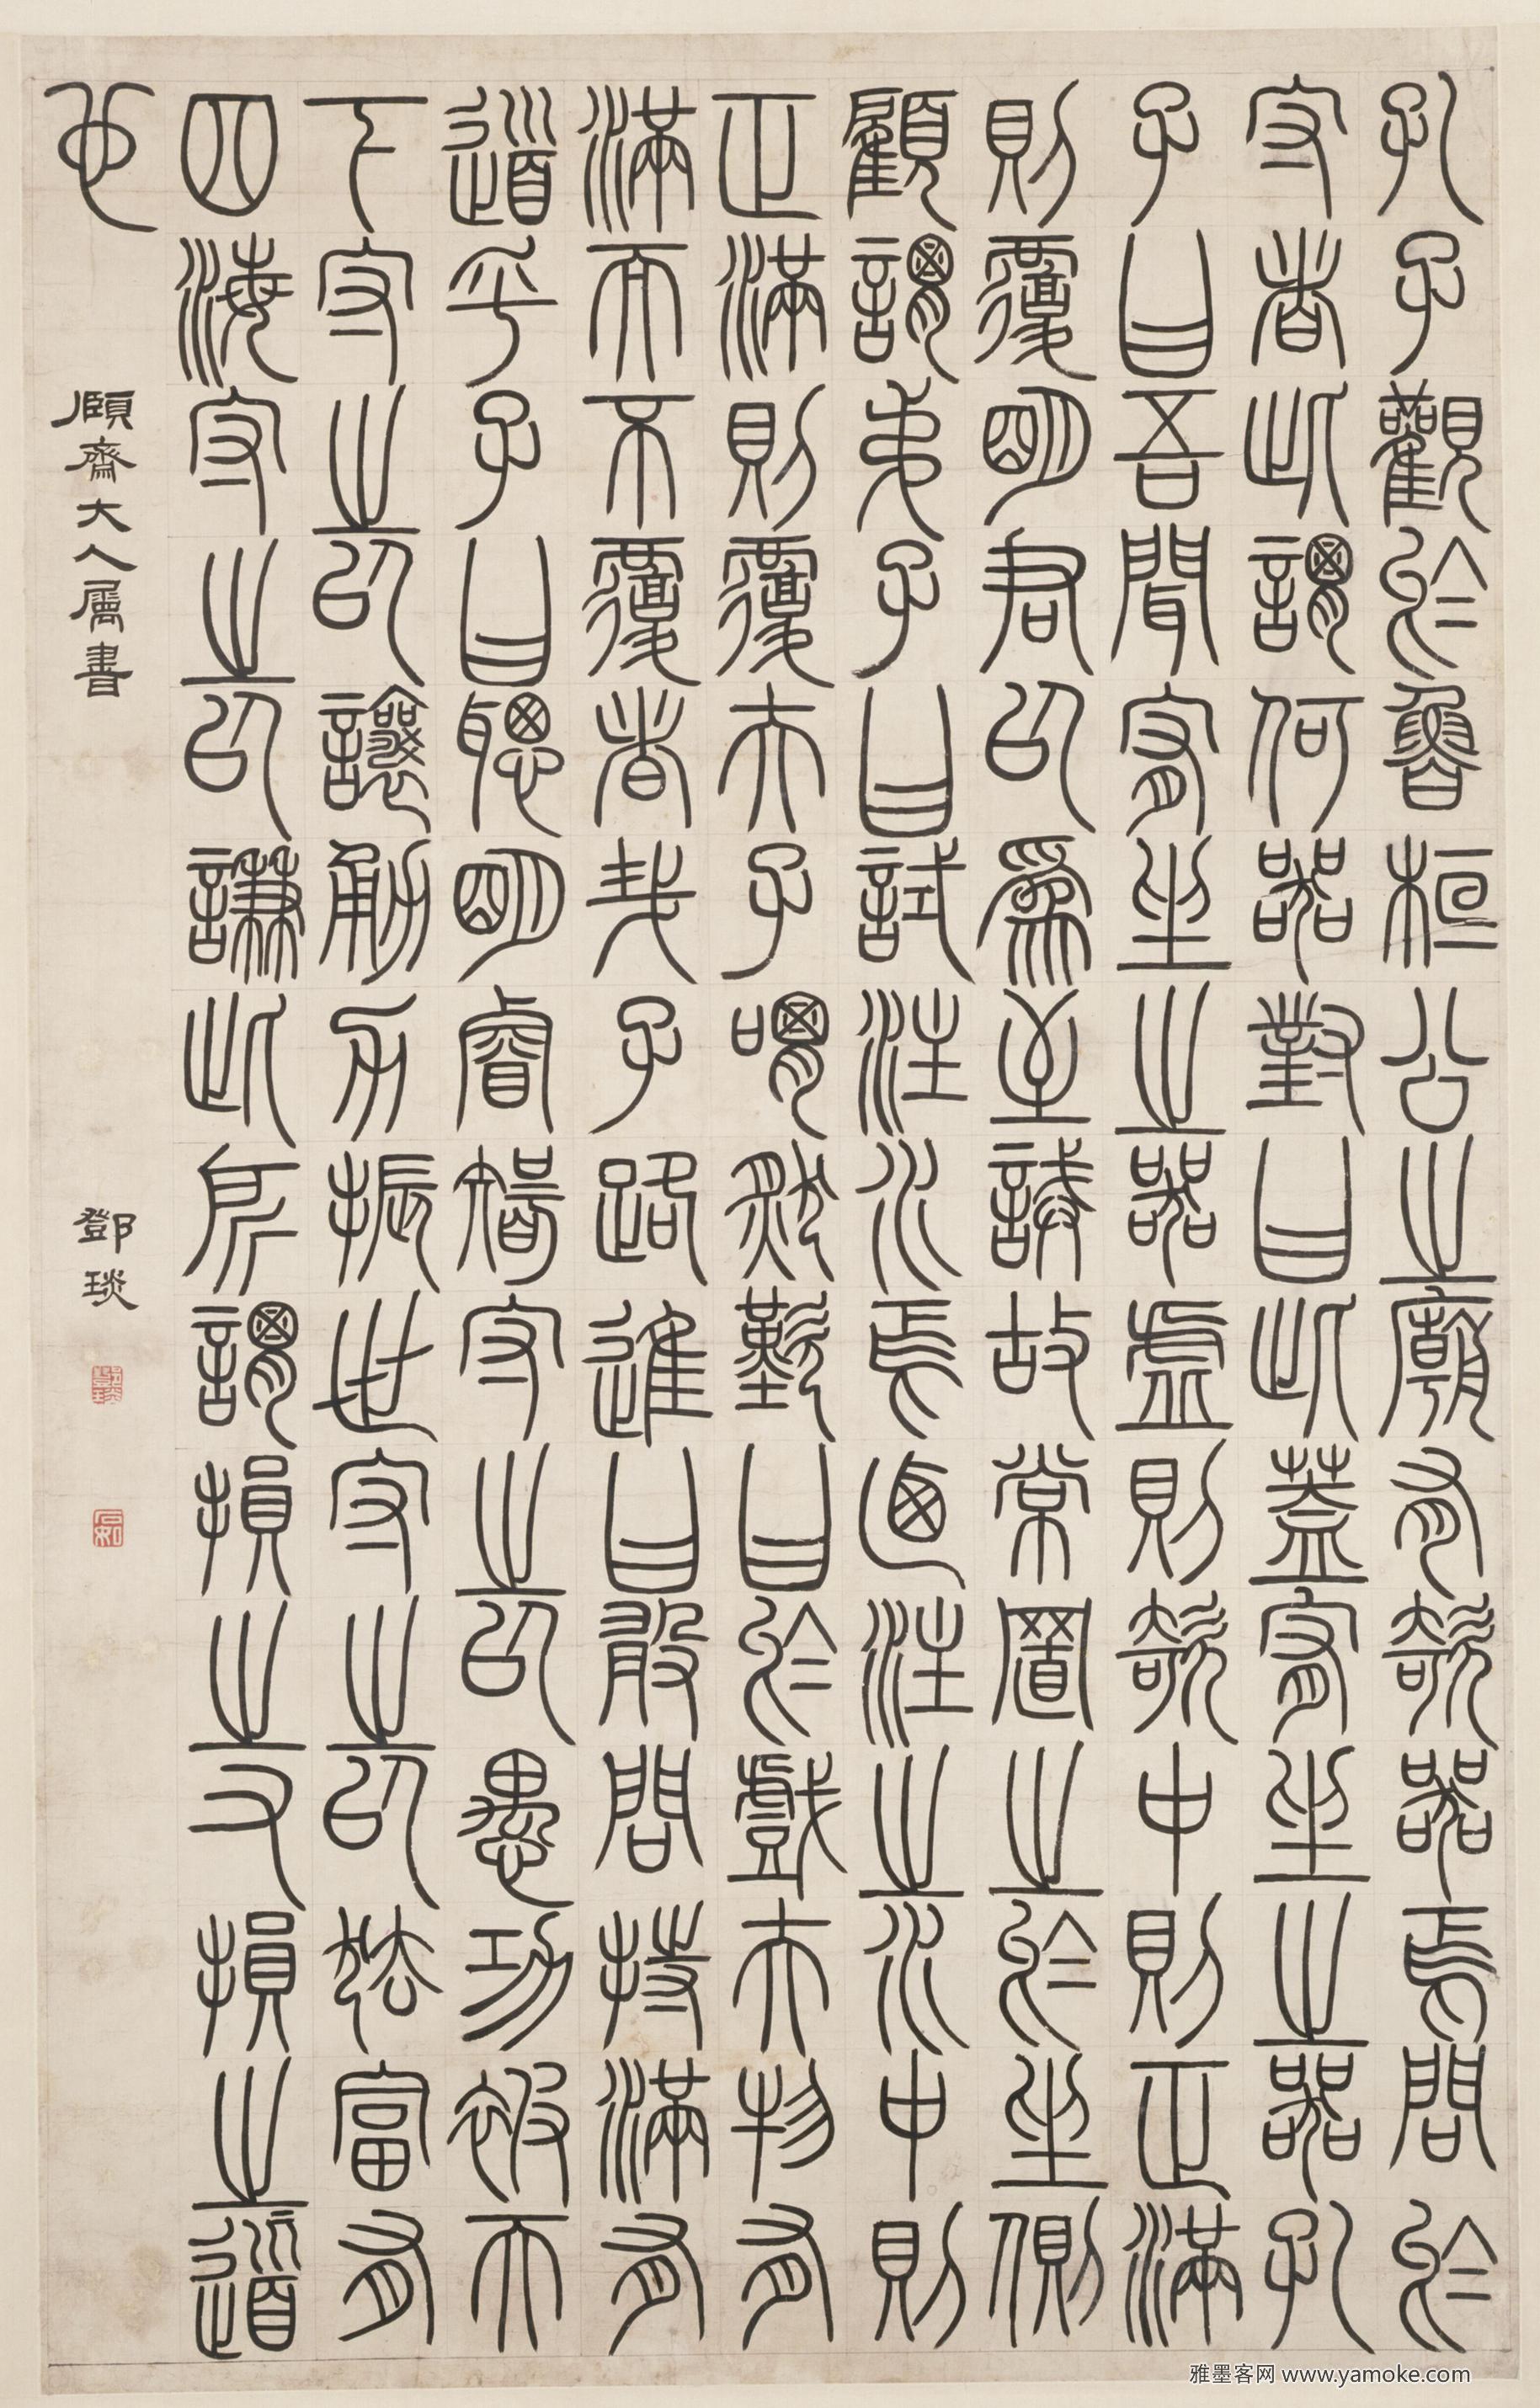 孔子觀於魯桓公之廟有欹器焉問於
守者此謂何器對曰此蓋宥坐之器孔
子曰吾聞宥坐之器虛則欹中則正滿
則覆明君以爲至誡故常置之於坐側
顧謂弟子曰試注水焉迺注之水中則
正滿則覆夫子喟然歎曰於戲夫物有
滿而不覆者哉子路進曰敢問持滿有
道乎子曰聰明睿智守之以愚功被天
下守之以讓勇力振世守之以怯富有
四海守之以謙此所謂損之又損之道
也
頤齋大人屬書
鄧琰
石如
雅墨客网 www.yamoke.com